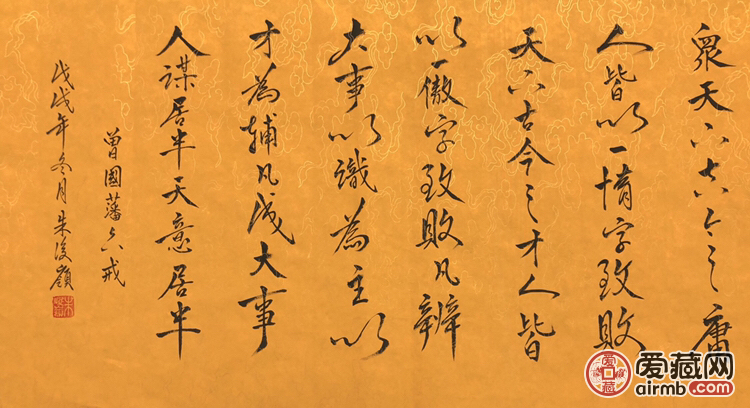 衆天下古今之庸
人皆以一惰字致敗
天下古今之才人皆
以一傲字致敗凡辨
大事以識為主以
才為輔凡成大事
人謀居半天意居半
曾國藩六戒
戊戌年冬月朱俊嶺
爱藏网
airmb.com